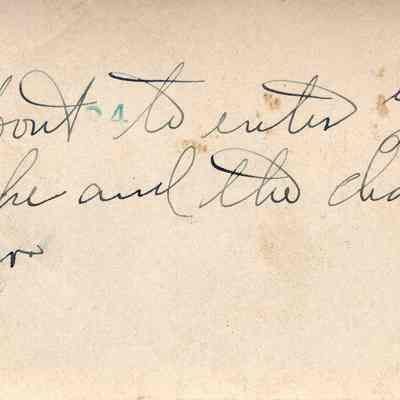 bout 24 to enter
he and the cha